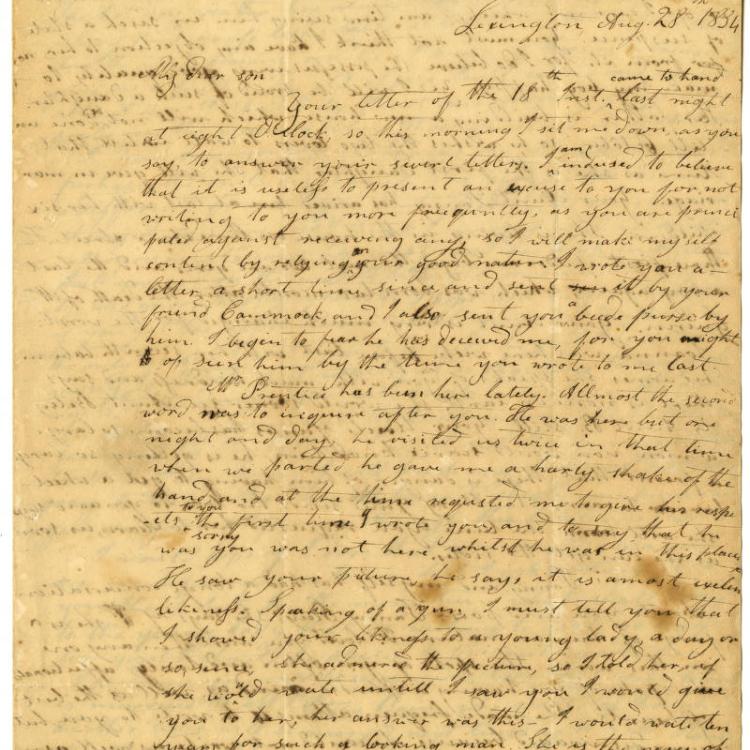 Lexington Aug. 28th 1834
My dear son
Your letter of the 18th Inst. came to hand last night
at eight O'Clock, so this morning I sit me down, as you
say, to answer your severl letters. I am indused to believe
that it is useless to present an excuse to you for not
writing to you more freequntly, as you are princi
pales against receiving any, so I will make myself
content by relying on your good nature. I wrote you a
letter a short time since and sent it by your
friend Cammock, and I also sent you a bede purse by
him. I begin to fear he has deceived me, for you might
of seen him by the time you wrote to me last.
Mr. Prentice has been here lately. Allmost the second
word was to inquire after you. He was here but one
night and day, he visited us twice in that time
when we parted he gave me a harty shake of the
hand and at the time requsted me to give his respe
-cts to you the first time I wrote you, and to say that he
was sorry you was not here, whilst he was in this place
He saw your picture, he says it is a most exelen
likeness. Speaking of a I must tell you that
I showed your likeness to a young lady, a day or
so, since, she admired the picture, so I told her, if
she would wate untill I saw you I would give
you to her, her answer was this - I would wate ten
years for such a looking man. She is the of